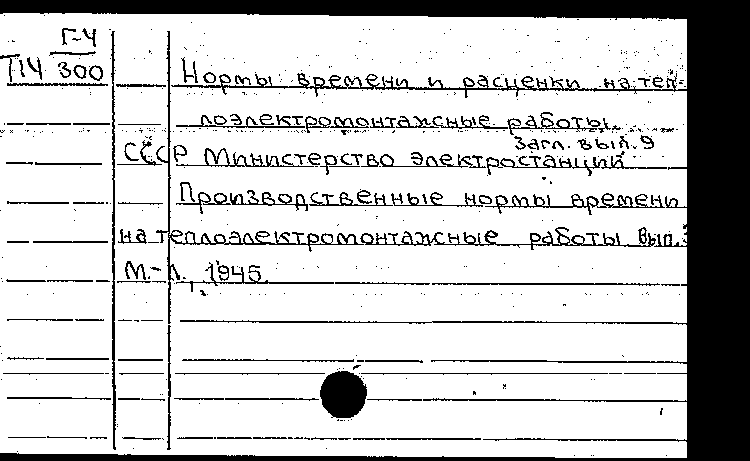 Г-4
П14 300
Нормы времени и расценки на теп-
лоэлектромонтажные работы.
Загл. вып. 9
СССР Министерство электростанций
Производственные нормы времени
на теплоэлектромонтажные работы вып.3
М.-Л., 1945.